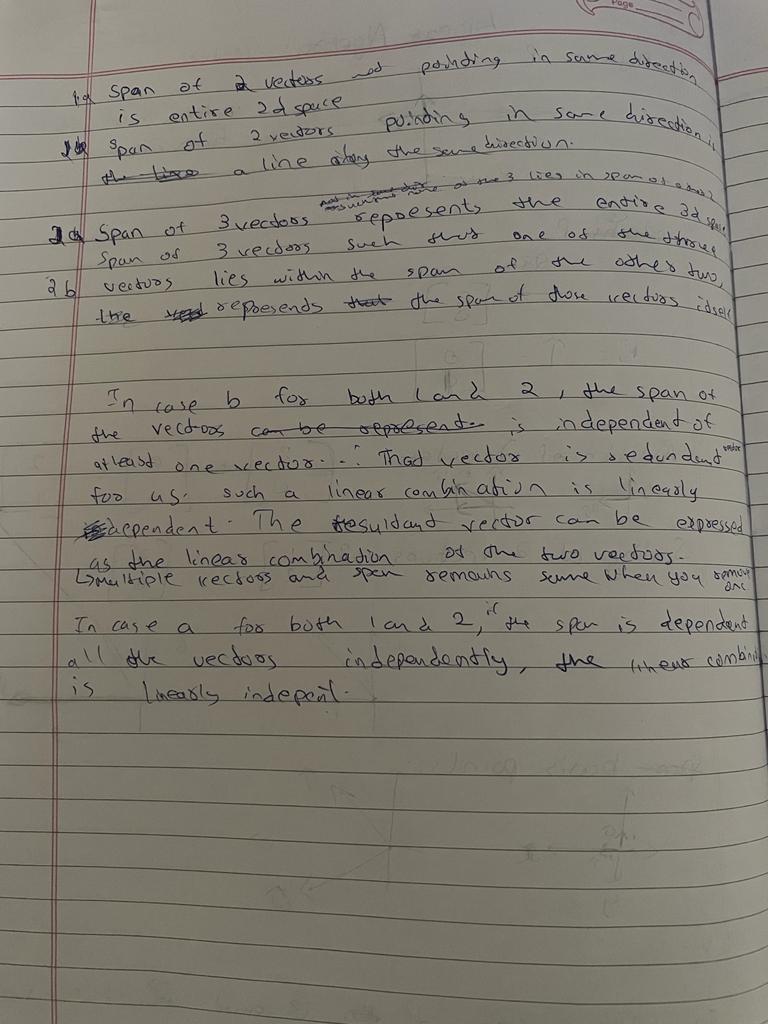 Page
1a Span of 2 vectors not pointing in same direction
is entire 2d space
1b span of 2 vectors pointing in same direction is
the line a line along the same direction.
one of the 3 lies in span of
2a Span of 3 vectors represents the entire 3d space
2b Span of 3 vectors such that one of the three
vectors lies within the span of the other two,
the represents that the span of those vectors itself
In case b for both 1 and 2, the span of
the vectors can be represent is independent of
atleast one vector. ∴ That vector is redundant vector
for us. such a linear combination is linearly
dependent. The resultant vector can be expressed
as the linear combination of the two vectors.
↳ multiple vectors and span remains same when you remove one
In case a for both 1 and 2, if the span is dependent
all the vectors independently, the linear combin
is linearly indepent.